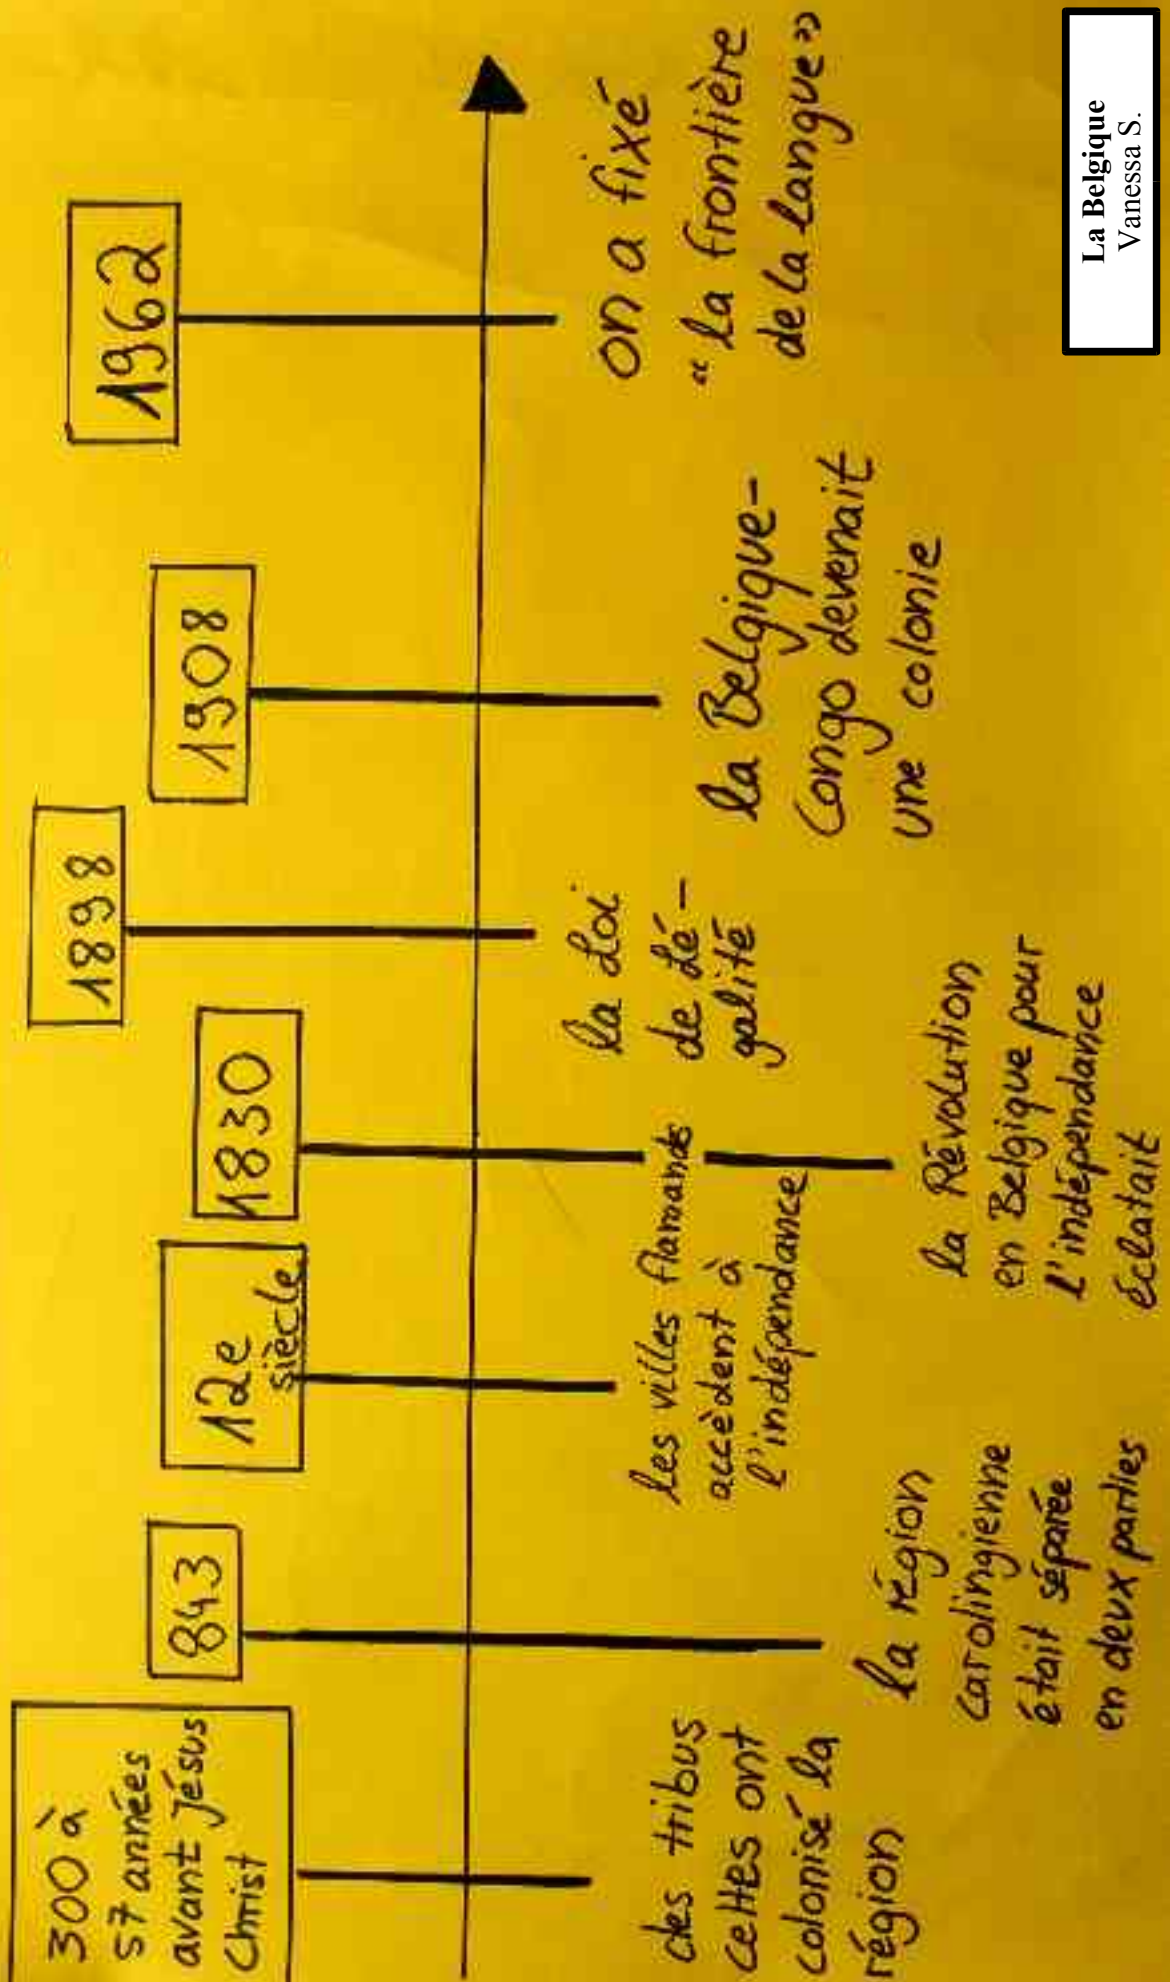 300 à
57 années
avant Jésus
Christ
des tribus
celtes ont
colonisé la
région
843
la région
carolingienne
était séparée
en deux parties
12e
siècle
les villes flamandes
accèdent à
l'indépendance
1830
la Révolution
en Belgique pour
l'indépendance
éclatait
1898
la Loi
de Lé-
galité
1908
la Belgique-
Congo devenait
une colonie
1962
on a fixé
“ la frontière
de la langue”
La Belgique
Vanessa S.